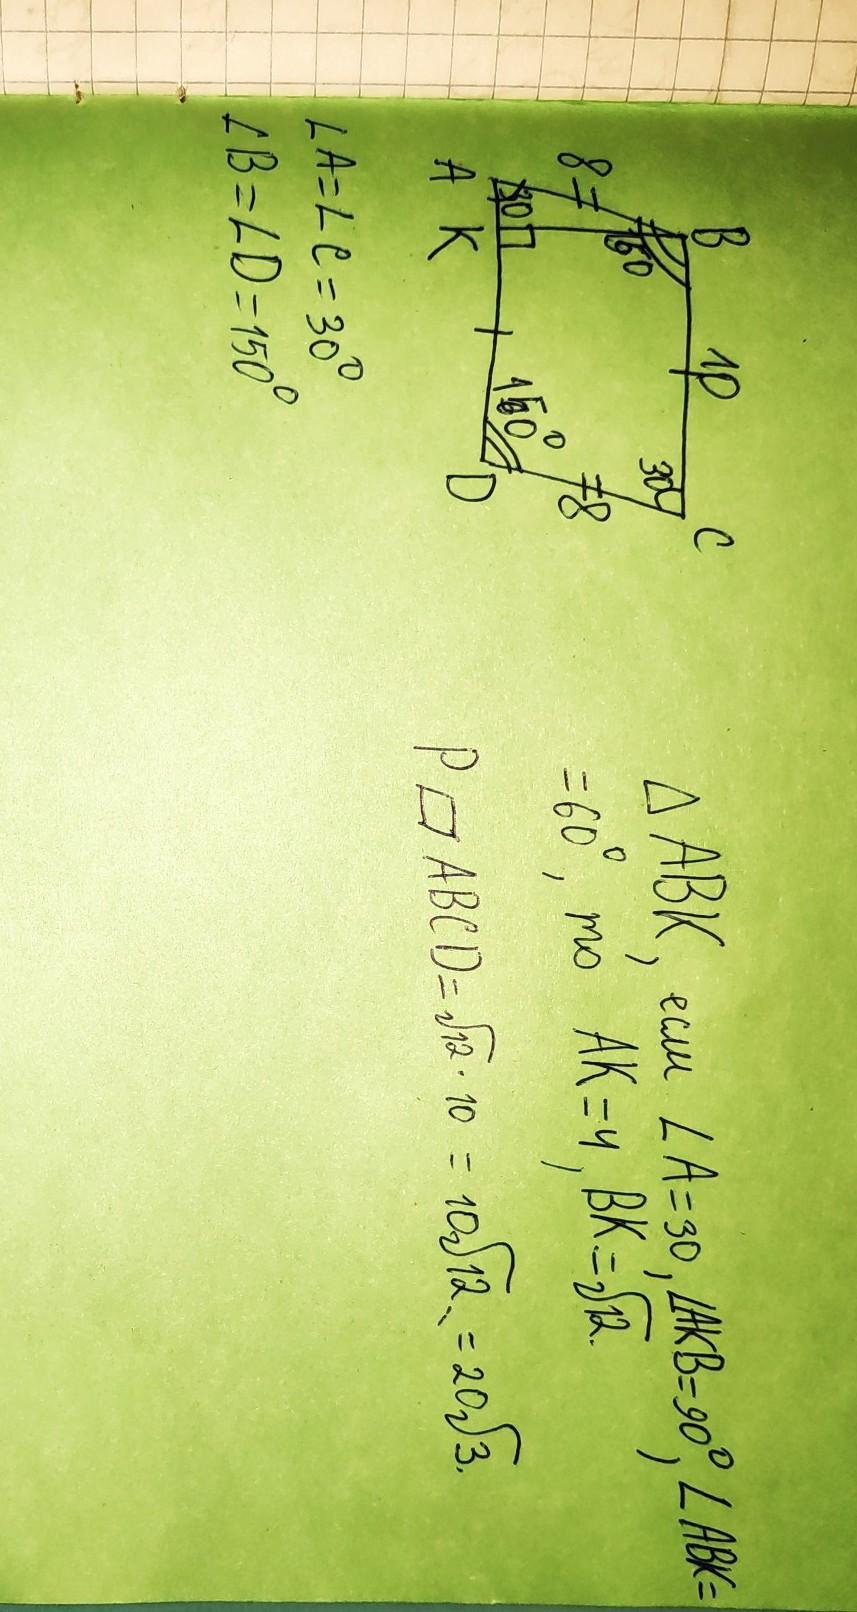 B 10 C
150 30
8 8
30 150°
A K D
∠A=∠C=30°
∠B=∠D=150°
△ABK, если ∠A=30, ∠AKB=90°, ∠ABK=
=60°, то AK=4, BK=√12.
P▱ABCD=√12·10=10√12=20√3.